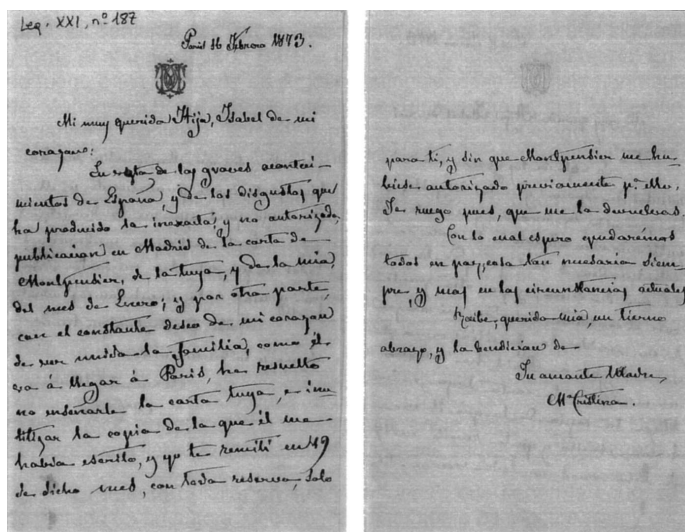 Leg. XXI, nº 187
Paris 16 Febrero 1873.
Mi muy querida Hija, Isabel de mi
corazon:
En vista de los graves aconteci-
mientos de España, y de los disgustos que
ha producido la inexacta, y no autorizada,
publicacion en Madrid de la carta de
Montpensier, de la tuya, y de la mia,
del mes de Enero; y por otra parte,
con el constante deseo de mi corazon
de ver unida la familia, como él
va á llegar á Paris, he resuelto
no enseñarle la carta tuya, e inu-
tilizar la copia de la que él me
habia escrito, y yo te remití en 19
de dicho mes, con toda reserva, solo
para ti, y sin que Montpensier me hu-
biese autorizado previamente pª. ello.
Te ruego pues, que me la devuelvas.
Con lo cual espero quedarémos
todos en paz, cosa tan necesaria siem-
pre, y mas en las circunstancias actuales.
Recibe, querida mia, un tierno
abrazo, y la bendicion de
Tu amante Madre,
Mª Cristina.